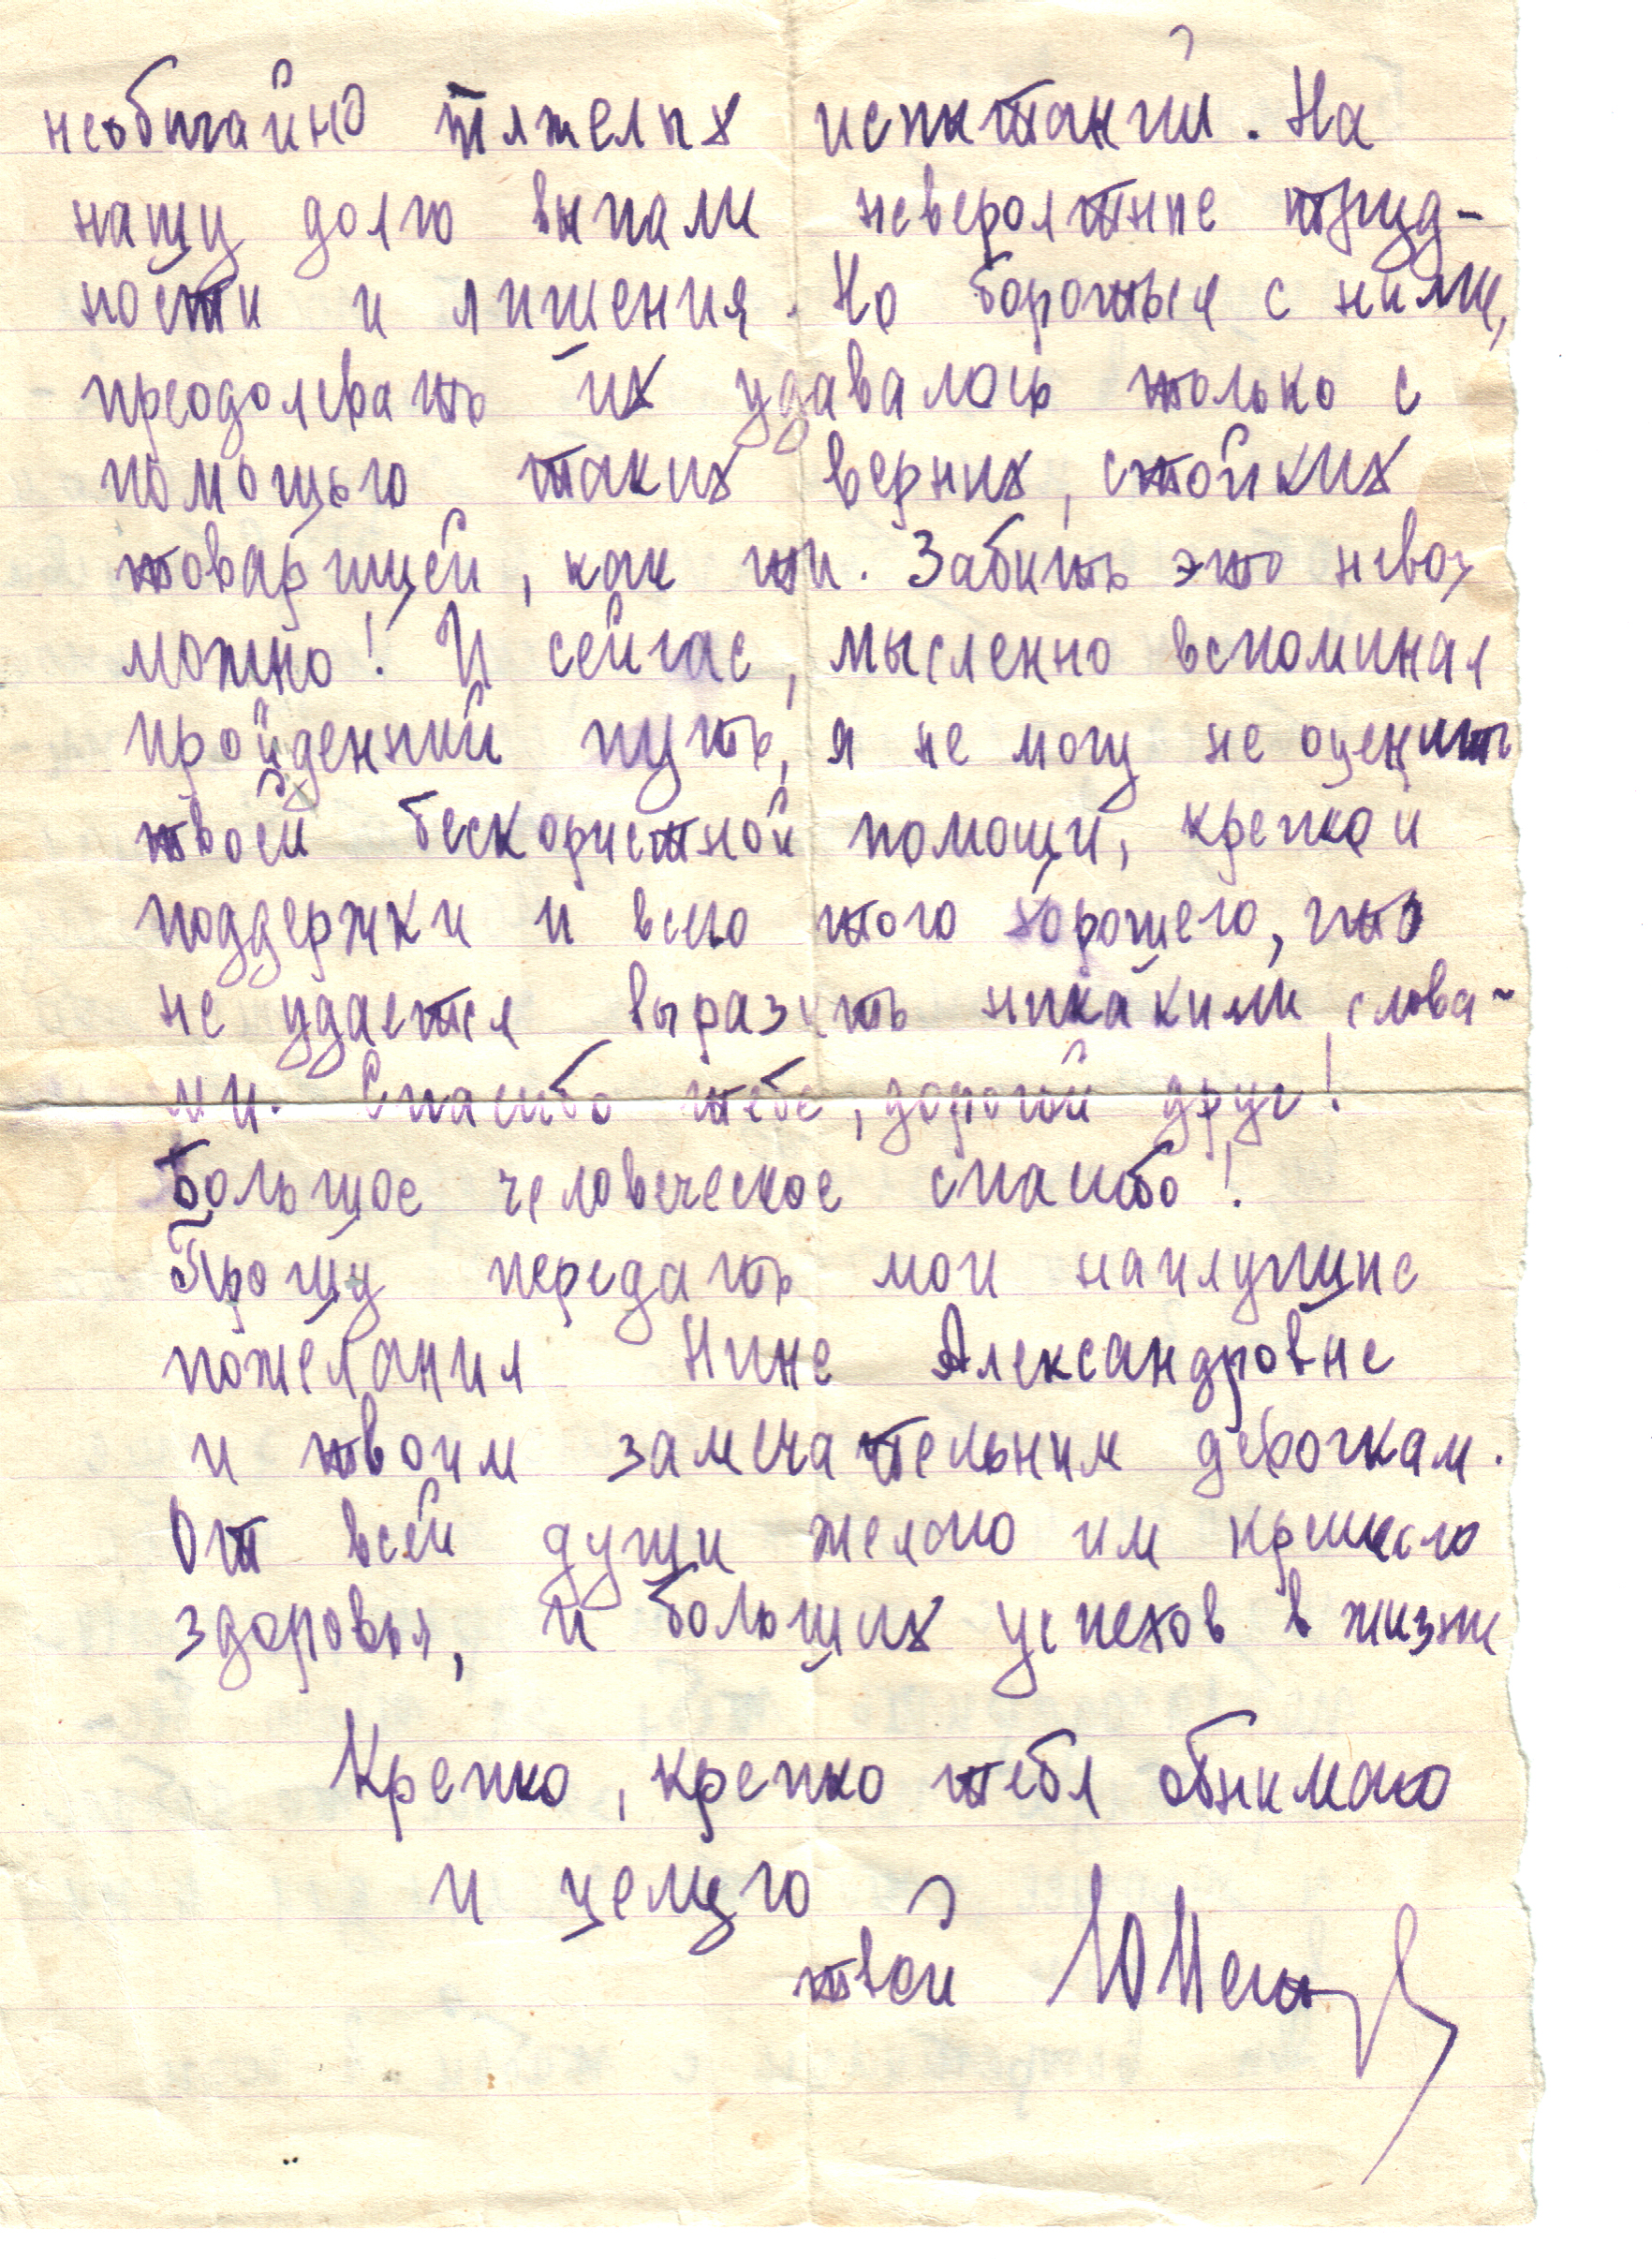 необычайно тяжелых испытаний. На
нашу долю выпали невероятные труд-
ности и лишения. Но бороться с ними,
преодолевать их удавалось только с
помощью таких верных, стойких
товарищей, как ты. Забыть это невоз
можно! И сейчас, мысленно вспоминая
пройденный путь, я не могу не оценить
твоей бескорыстной помощи, крепкой
поддержки и всего того хорошего, что
не удается выразить никакими слова-
ми. Спасибо тебе, дорогой друг!
Большое человеческое спасибо!
Прошу передать мои наилучшие
пожелания Нине Александровне
и твоим замечательным девочкам.
От всей души желаю им крепкого
здоровья, и больших успехов в жизни
Крепко, крепко тебя обнимаю
и целую
твой